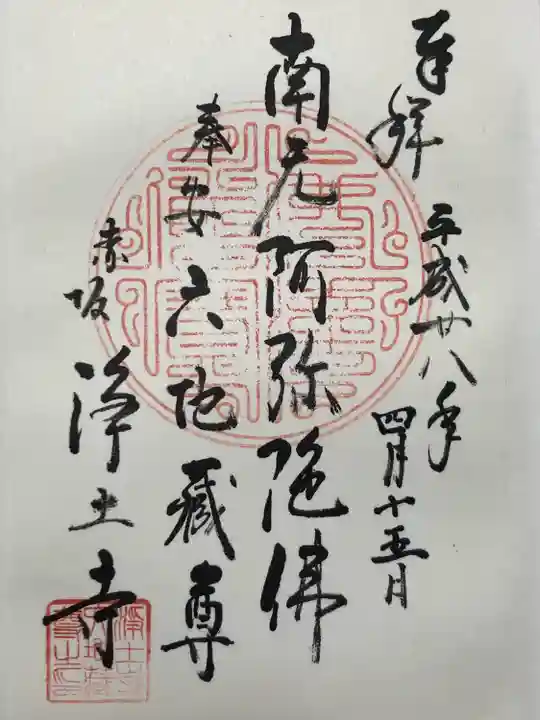 奉拝 平成廿八年四月十五日
南无阿弥陀佛
奉安 六地蔵尊
赤坂 浄土寺